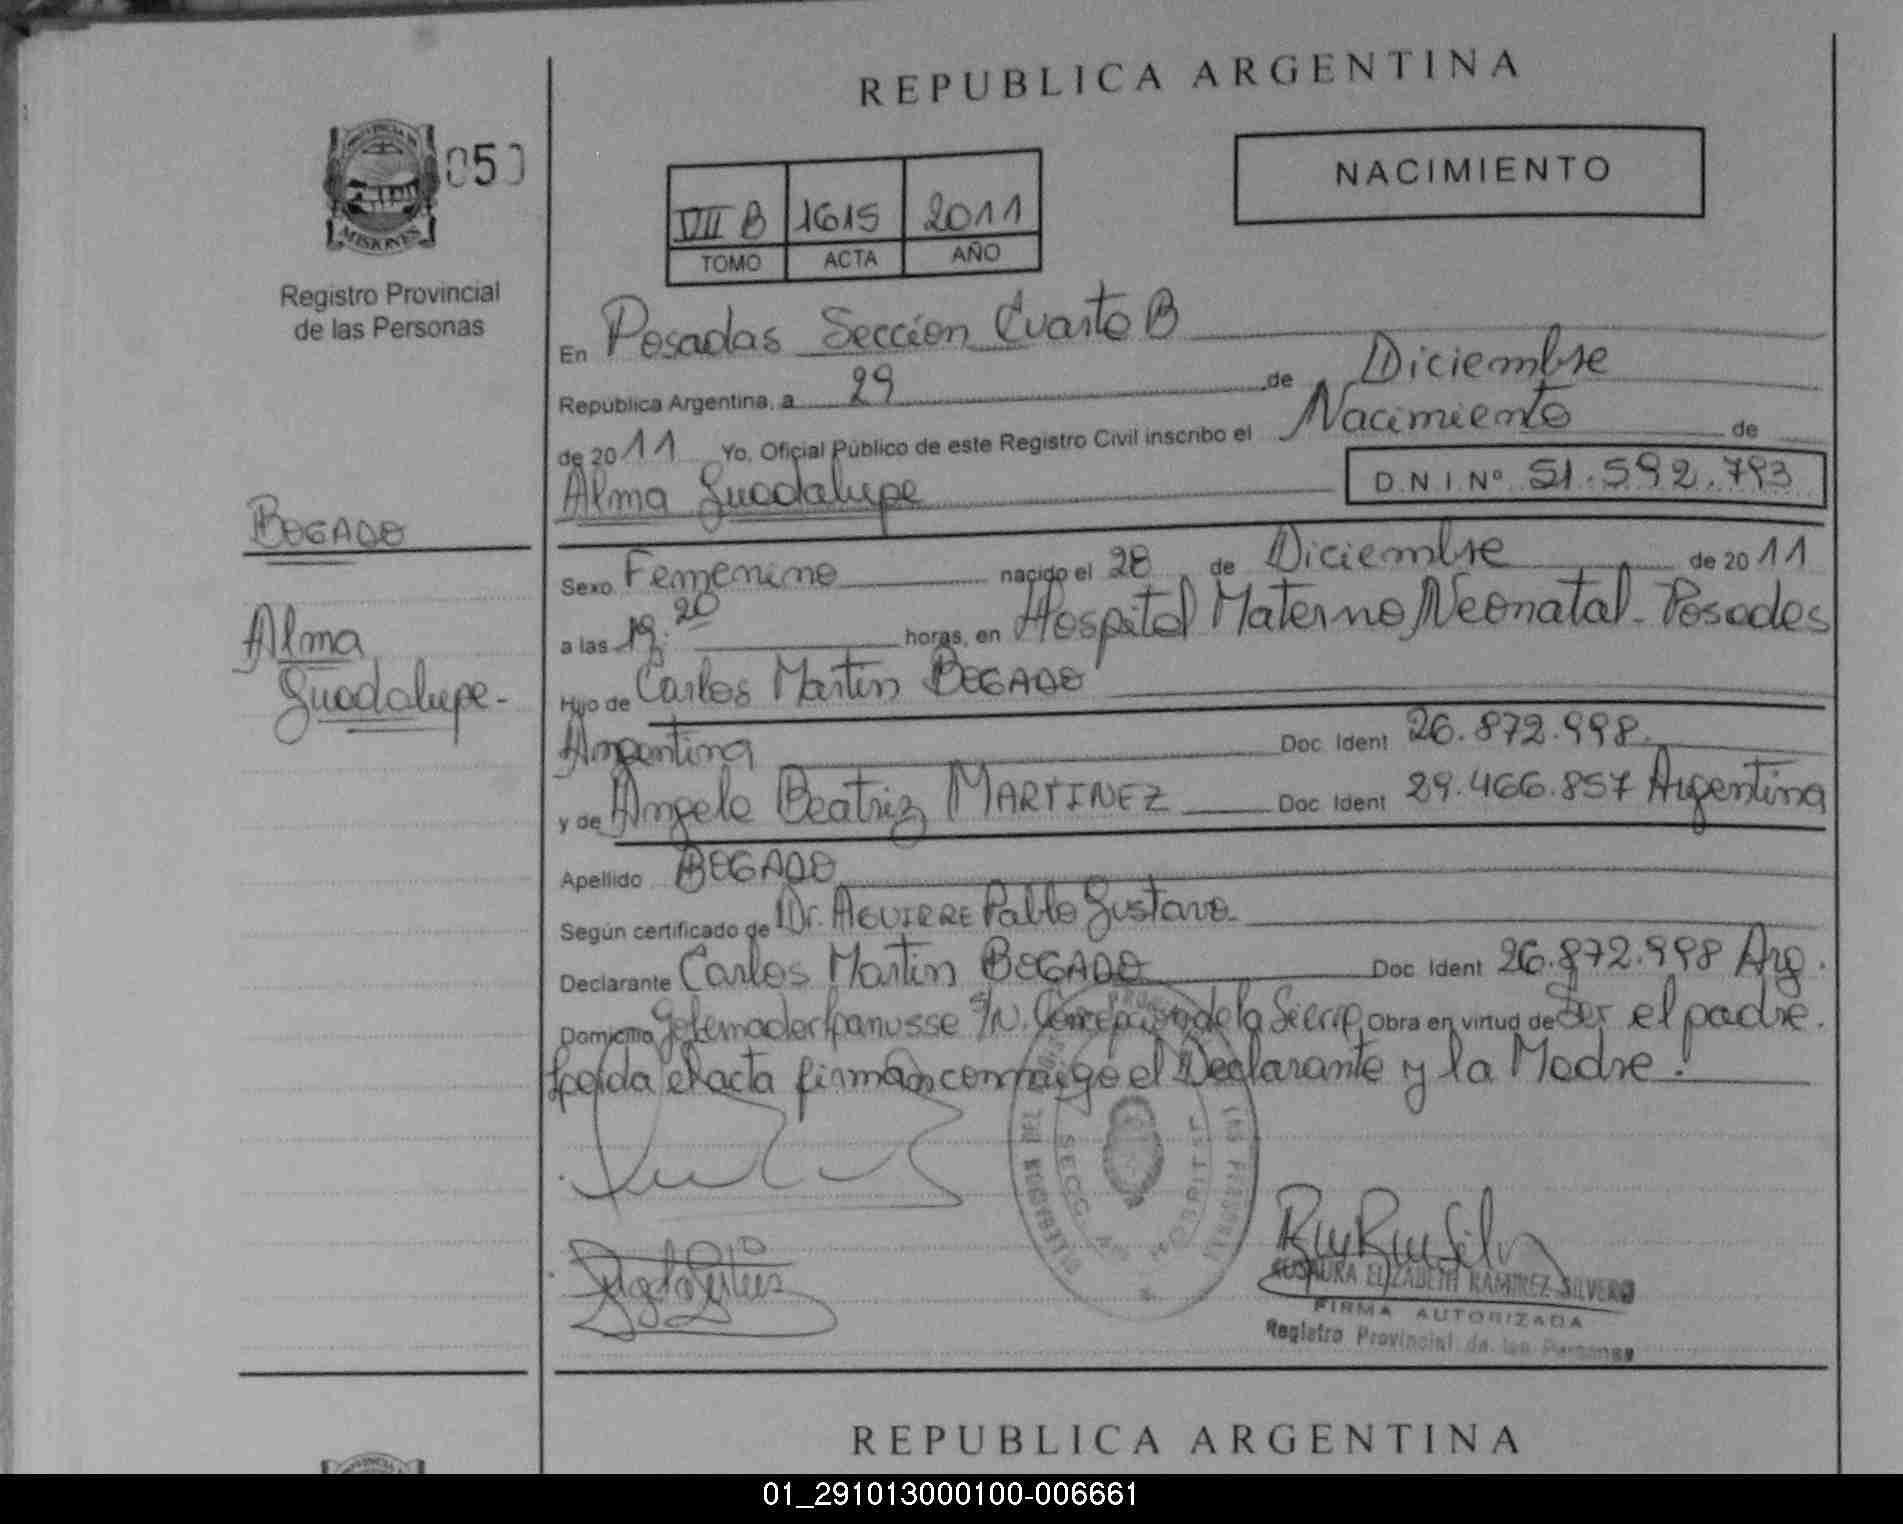 REPUBLICA ARGENTINA
PROVINCIA DE
MISIONES
050
Registro Provincial
de las Personas
NACIMIENTO
VIII B 1615 2011
TOMO ACTA AÑO
En Posadas Sección Cuarta B
Republica Argentina, a 29 de Diciembre
de 2011 Yo, Oficial Público de este Registro Civil inscribo el Nacimiento de
Alma Guadalupe D.N.I. Nº 51.592.793
BOGADO
Alma
Guadalupe-
Sexo Femenino nacido el 28 de Diciembre de 2011
a las 19.20 horas, en Hospital Materno Neonatal - Posadas
Hijo de Carlos Martin BOGADO
Argentina Doc. Ident 26.872.998.
y de Angela Beatriz MARTINEZ Doc. Ident 29.466.857 Argentina
Apellido BOGADO
Según certificado de Dr. AGUIRRE Pablo Gustavo.
Declarante Carlos Martin BOGADO Doc. Ident 26.872.998 Arg.
Domicilio S/N. Concepción de la Sierra Obra en virtud de Ser el padre.
Leida el acta firman conmigo el Declarante y la Madre.
ROSAURA ELIZABETH RAMIREZ SILVERO
FIRMA AUTORIZADA
Registro Provincial de las Personas
REPUBLICA ARGENTINA
01_291013000100-006661